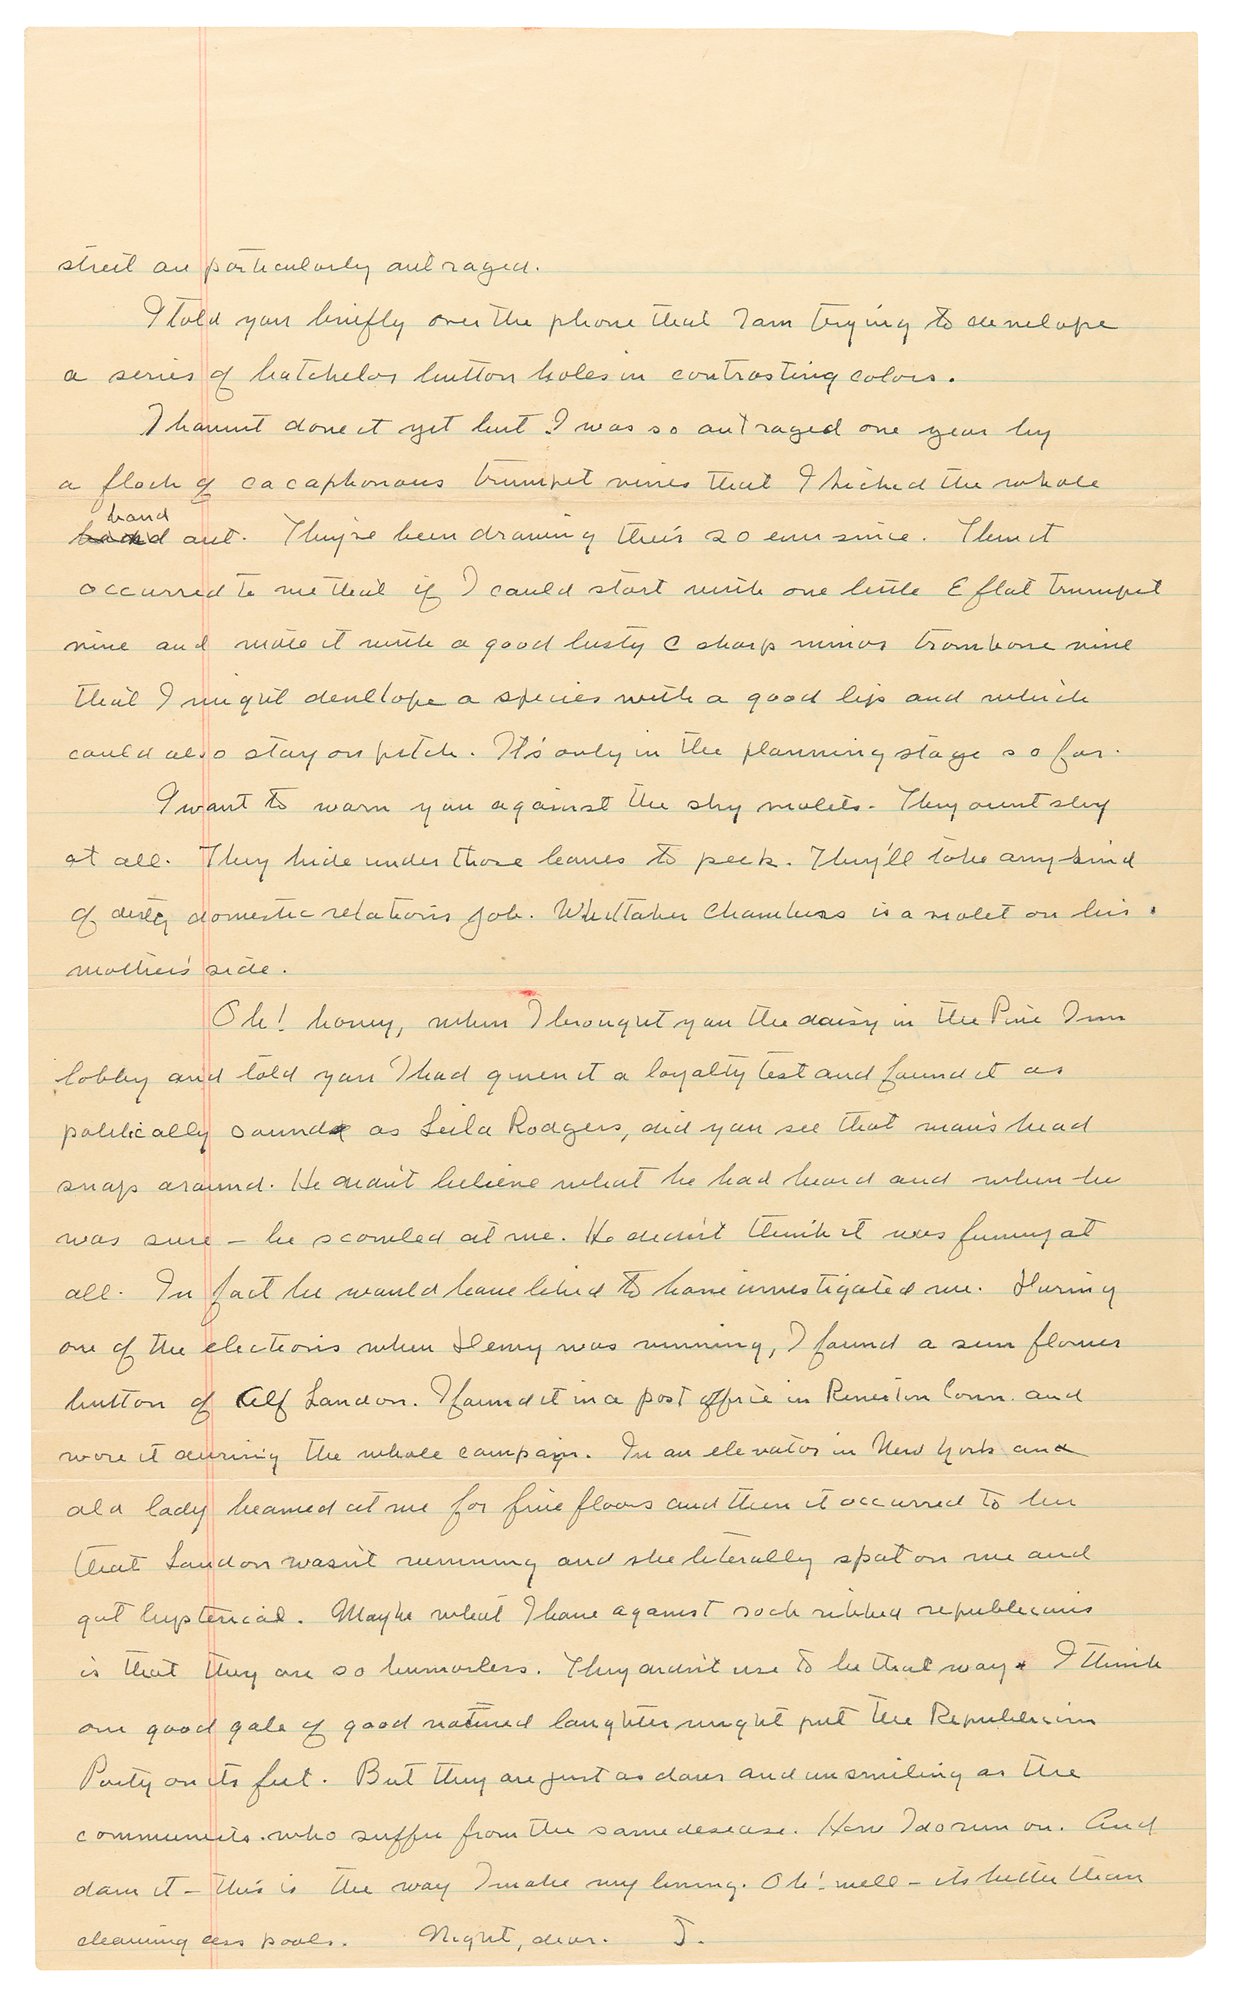 street are particularly outraged.
I told you briefly over the phone that I am trying to develope
a series of batchelor button holes in contrasting colors.
I havent done it yet but I was so outraged one year by
a flock of cacaphonous trumpet vines that I kicked the whole
band
out. They've been drawing their 20 ever since. Then it
occurred to me that if I could start with one little E flat trumpet
vine and mate it with a good lusty C sharp minor trombone vine
that I might devellope a species with a good lip and which
could also stay on pitch. It's only in the planning stage so far.
I want to warn you against the shy violets. They arent shy
at all. They hide under those leaves to peek. They'll take any kind
of dirty domestic relations job. Whittaker Chambers is a violet on his
mother's side.
Oh! honey, when I brought you the daisy in the Pine Inn
lobby and told you I had given it a loyalty test and found it as
politically sound as Leila Rodgers, did you see that man's head
snap around. He didn't believe what he had heard and when he
was sure – he scowled at me. He didn't think it was funny at
all. In fact he would have liked to have investigated me. During
one of the elections when Dewey was running, I found a sun flower
button of Alf Landon. I found it in a post office in Conn. and
wore it during the whole campaign. In an elevator in New York and
old lady beamed at me for five floors and then it occurred to her
that Landon wasn't running and she literally spat on me and
got hysterical. Maybe what I have against rock ribbed republicans
is that they are so humorless. They didn't use to be that way. I think
one good gale of good natured laughter might put the Republican
Party on its feet. But they are just as dour and unsmiling as the
communists. who suffer from the same desease. How I do run on. And
darn it – this is the way I make my living. Oh! well – its better than
cleaning cess pools. Night, dear. J.